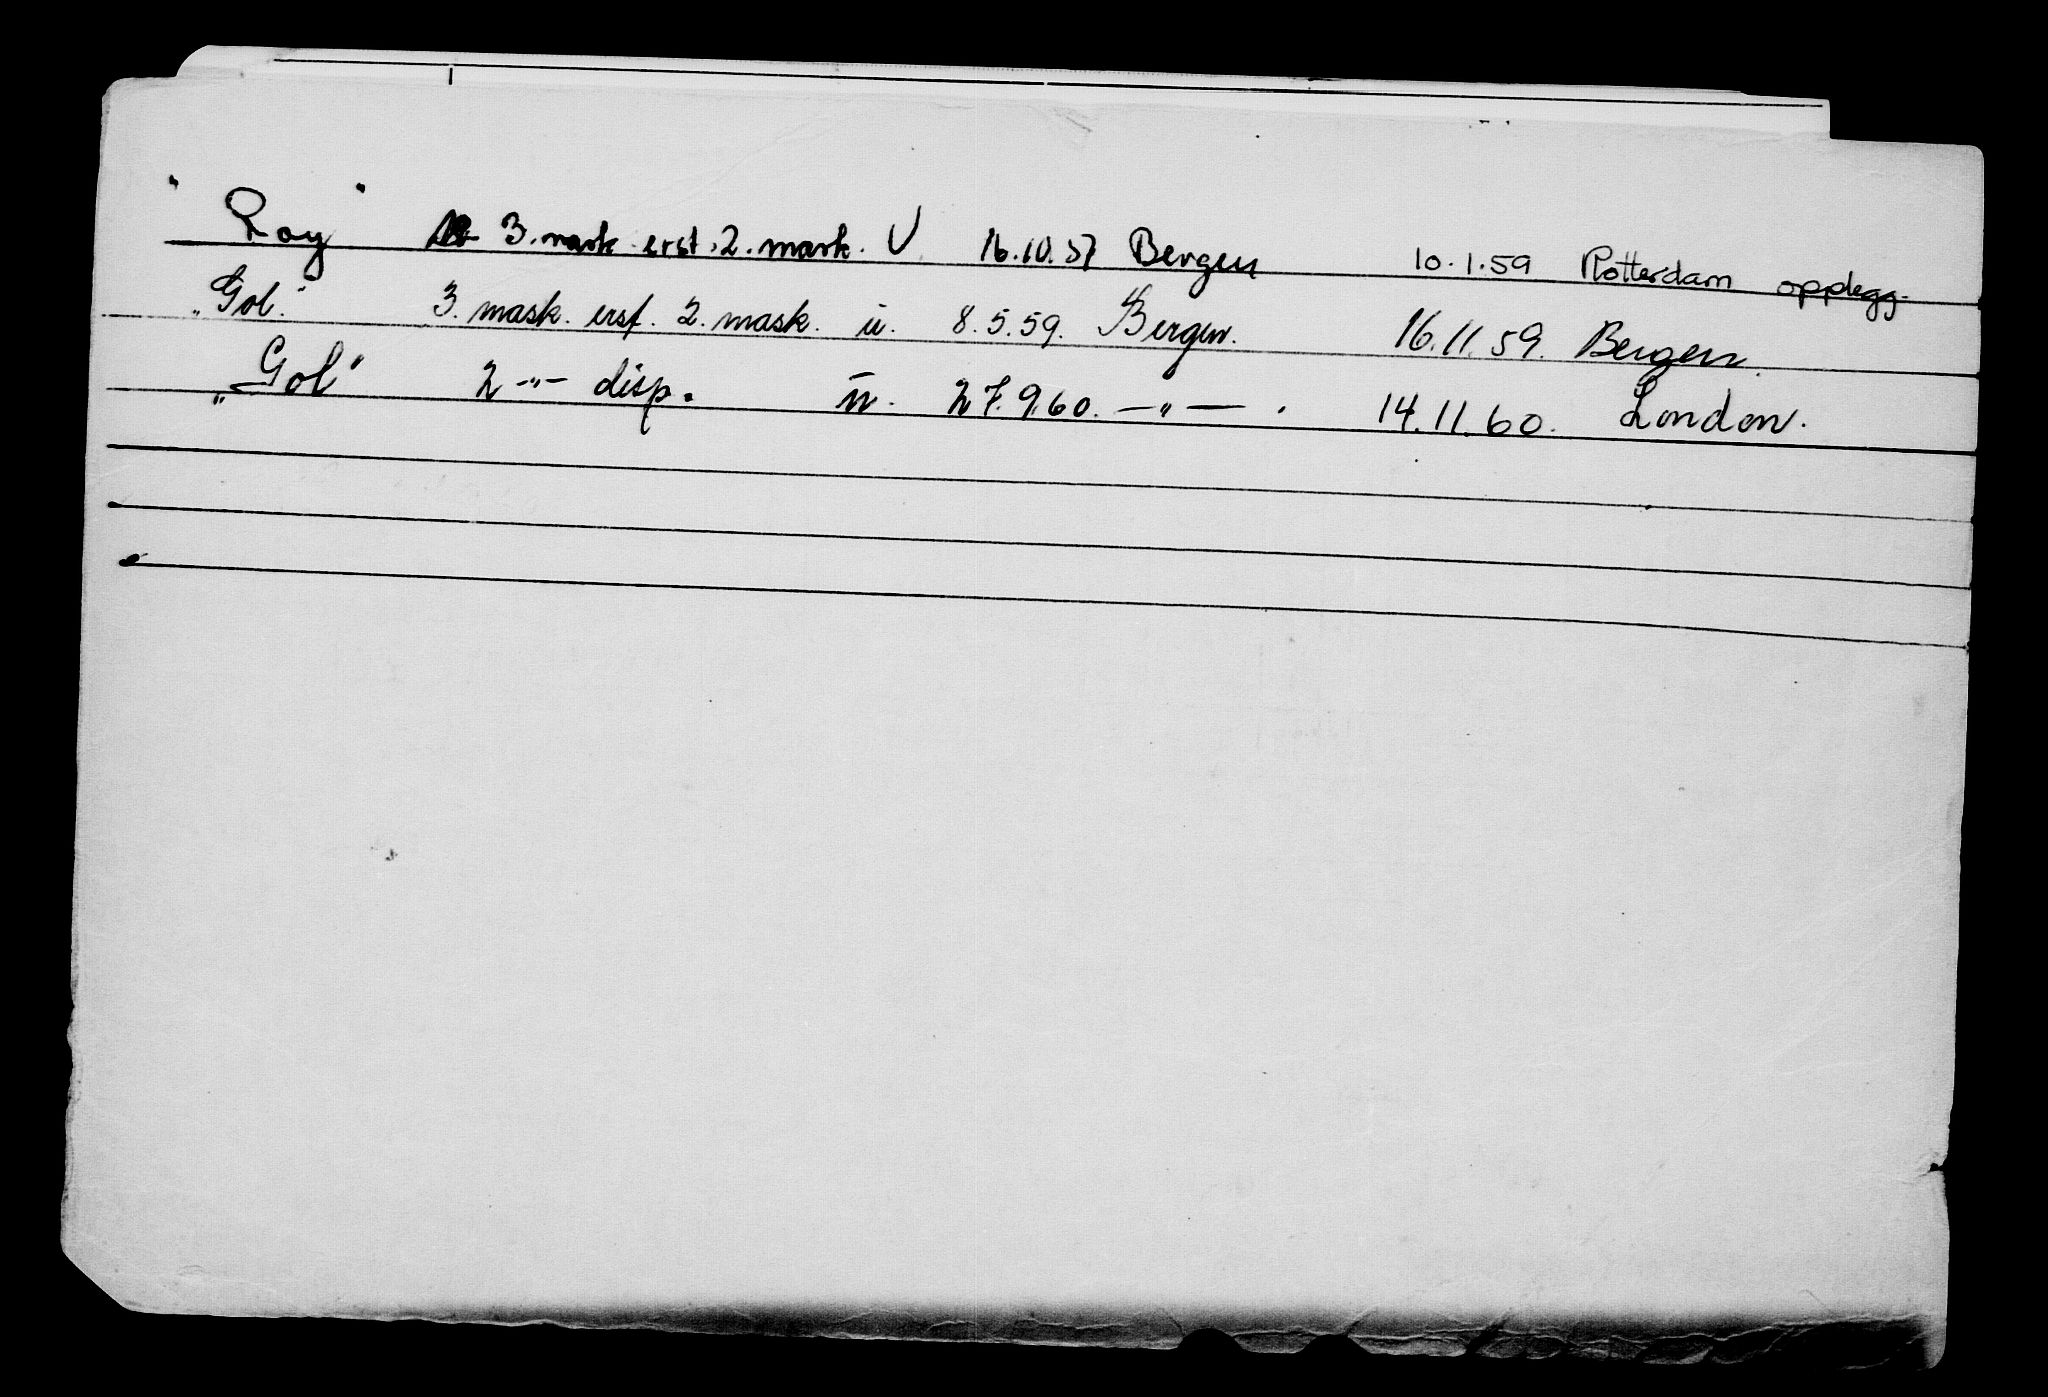 " Roy " 3. mask erst. 2. mask. U 16.10.57 Bergen 10.1.59 Rotterdam opplegg.
„Gol." 3. mask. erst. 2. mask. u. 8.5.59. Bergen. 16.11.59. Bergen.
„Gol" 2 -"- disp. u. 27.9.60. -"- . 14.11.60. London.